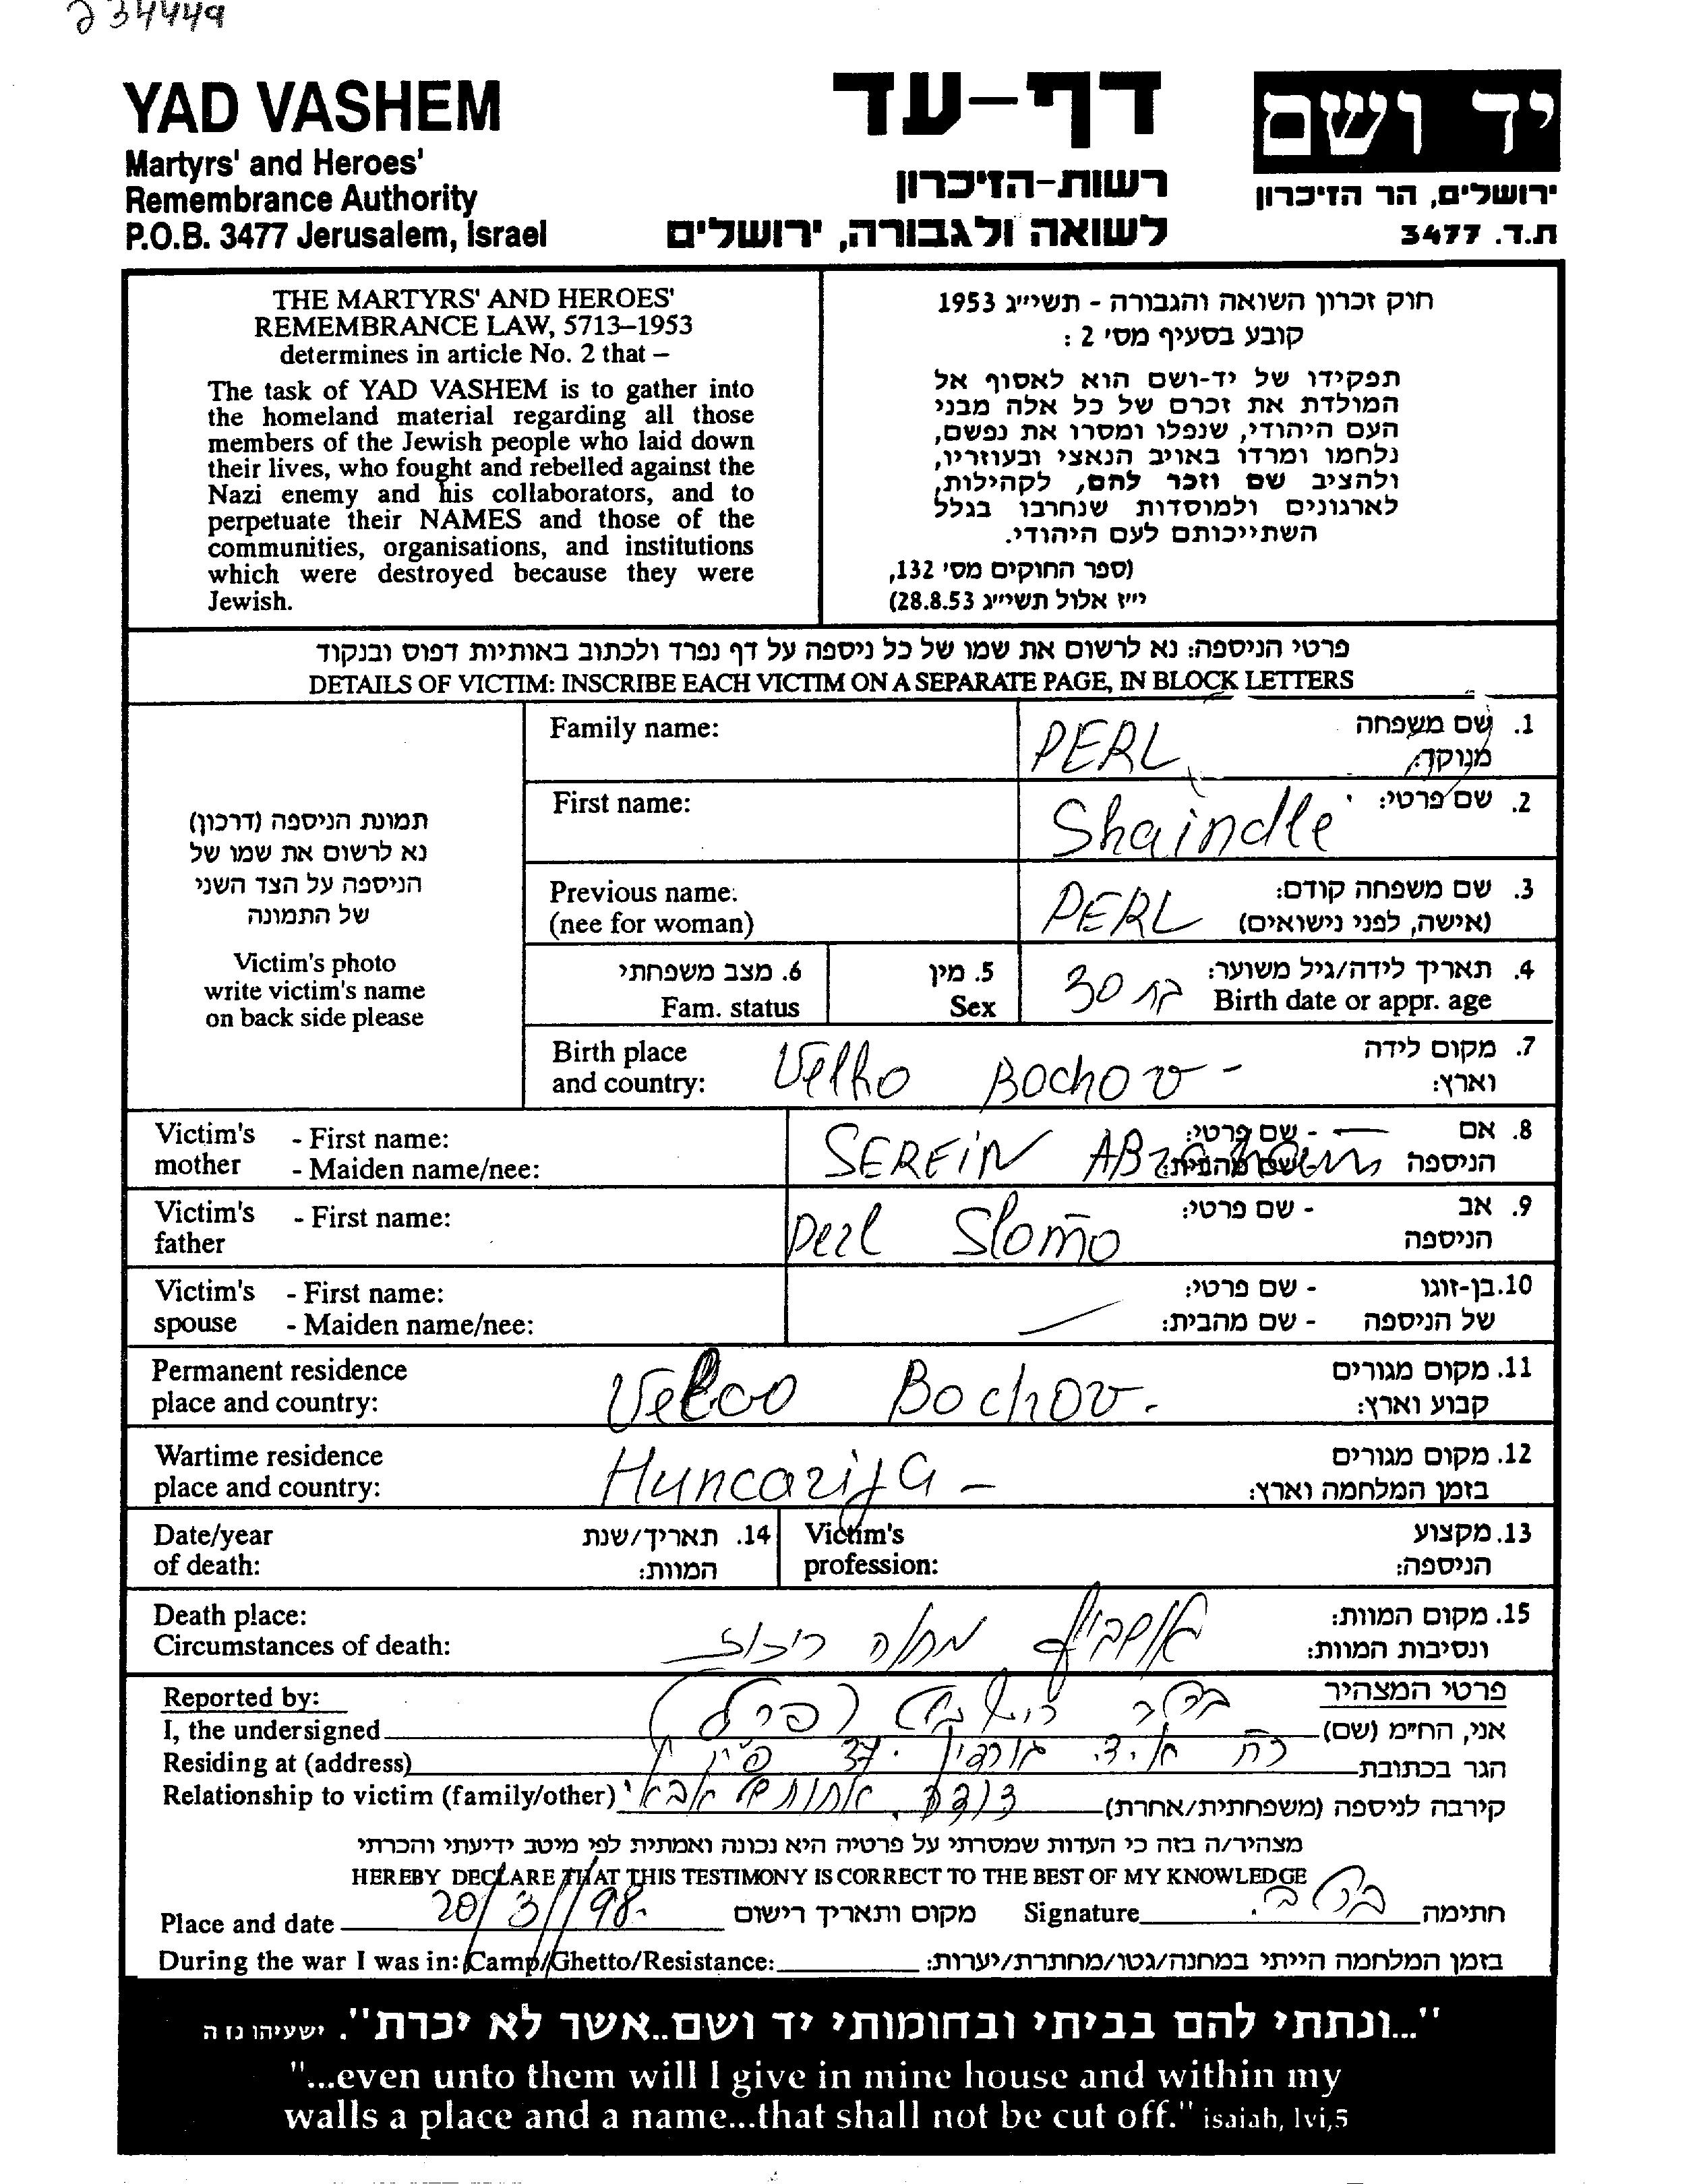 234449
YAD VASHEM
Martyrs' and Heroes'
Remembrance Authority
P.O.B. 3477 Jerusalem, Israel
דף-עד
רשות-הזיכרון
לשואה ולגבורה, ירושלים
יד ושם
ירושלים, הר הזיכרון
ת.ד. 3477
THE MARTYRS' AND HEROES'
REMEMBRANCE LAW, 5713–1953
determines in article No. 2 that –
The task of YAD VASHEM is to gather into
the homeland material regarding all those
members of the Jewish people who laid down
their lives, who fought and rebelled against the
Nazi enemy and his collaborators, and to
perpetuate their NAMES and those of the
communities, organisations, and institutions
which were destroyed because they were
Jewish.
חוק זכרון השואה והגבורה - תשי״ג 1953
קובע בסעיף מס׳ 2 :
תפקידו של יד-ושם הוא לאסוף אל
המולדת את זכרם של כל אלה מבני
העם היהודי, שנפלו ומסרו את נפשם,
נלחמו ומרדו באויב הנאצי ובעוזריו,
ולהציב שם וזכר להם, לקהילות,
לארגונים ולמוסדות שנחרבו בגלל
השתייכותם לעם היהודי.
(ספר החוקים מס׳ 132,
י״ז אלול תשי״ג 28.8.53)
פרטי הניספה: נא לרשום את שמו של כל ניספה על דף נפרד ולכתוב באותיות דפוס ובנקוד
DETAILS OF VICTIM: INSCRIBE EACH VICTIM ON A SEPARATE PAGE, IN BLOCK LETTERS
תמונת הניספה (דרכון)
נא לרשום את שמו של
הניספה על הצד השני
של התמונה
Victim's photo
write victim's name
on back side please
Family name: PERL 1. שם משפחה
מנוקד:
First name: Shaindle 2. שם פרטי:
Previous name: PERL 3. שם משפחה קודם:
(nee for woman) (אישה, לפני נישואים)
6. מצב משפחתי 5. מין 4. תאריך לידה/גיל משוער:
Fam. status Sex בת 30 Birth date or appr. age
Birth place Velko Bochov - 7. מקום לידה
and country: וארץ:
Victim's - First name: - שם פרטי: 8. אם
mother - Maiden name/nee: SEREIN ABraham - שם מהבית: הניספה
Victim's - First name: Perl Slomo - שם פרטי: 9. אב
father הניספה
Victim's - First name: - שם פרטי: 10. בן-זוגו
spouse - Maiden name/nee: - שם מהבית: של הניספה
Permanent residence 11. מקום מגורים
place and country: Velco Bochov. קבוע וארץ:
Wartime residence 12. מקום מגורים
place and country: Huncarija - בזמן המלחמה וארץ:
Date/year 14. תאריך/שנת Victim's 13. מקצוע
of death: המוות: profession: הניספה:
Death place: 15. מקום המוות:
Circumstances of death: אושביץ מחנה ריכוז ונסיבות המוות:
Reported by: פרטי המצהיר
I, the undersigned (פרל) אני, הח״מ (שם)
Residing at (address) רח א.ד. גורדון 37 הגר בכתובת
Relationship to victim (family/other) דודה, אחות של אבא קירבה לניספה (משפחתית/אחרת)
מצהיר/ה בזה כי העדות שמסרתי על פרטיה היא נכונה ואמתית לפי מיטב ידיעתי והכרתי
HEREBY DECLARE THAT THIS TESTIMONY IS CORRECT TO THE BEST OF MY KNOWLEDGE
Place and date 20/3/98. מקום ותאריך רישום Signature חתימה
During the war I was in: Camp/Ghetto/Resistance: בזמן המלחמה הייתי במחנה/גטו/מחתרת/יערות:
"...ונתתי להם בביתי ובחומותי יד ושם..אשר לא יכרת". ישעיהו נו ה
"...even unto them will I give in mine house and within my
walls a place and a name...that shall not be cut off." isaiah, lvi,5